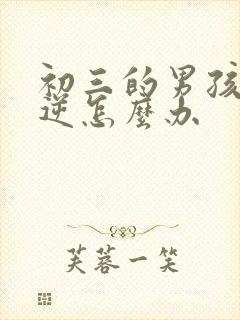 初三的男孩
逆怎麼办
芙蓉一笑